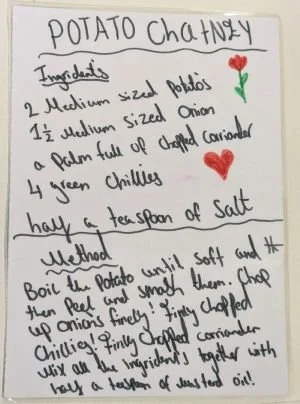 POTATO ChatNEY
Ingrident's
2 Medium sized Potato's
1½ Medium sized Onion
a Palm full of chopped Corriander
4 green Chillies
half a teaspoon of Salt
Method
Boil the Potato until soft and
then Peel and smash them. Chop
up onions finely! Finly Chopped
Chillies! Finly Chopped corriander
Mix all the ingrident's together with
half a teaspoon of musterd oil!